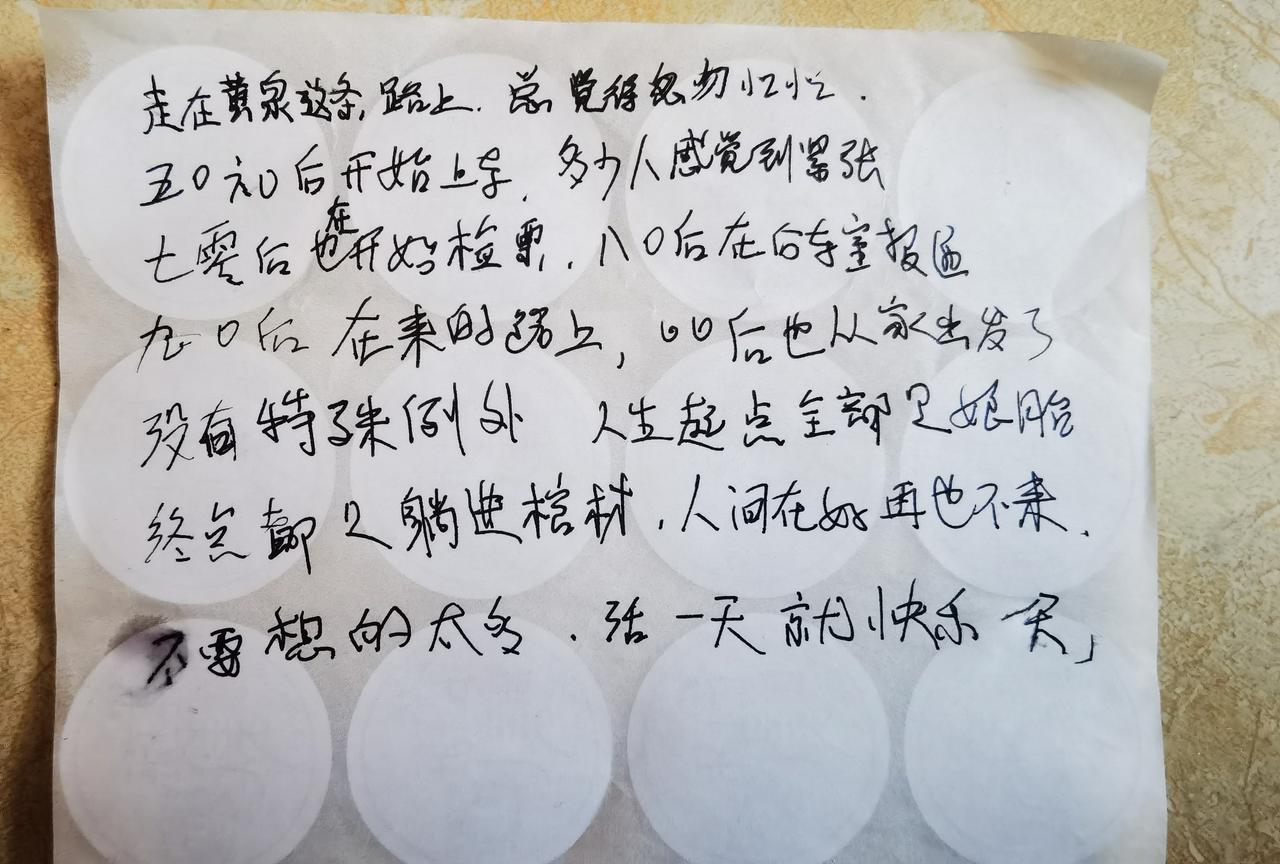 走在黄泉这条路上.总觉得匆匆忙忙.
五0六0后开始上车,多少人感觉到紧张
七零后也在开始检票,八0后在候车室报道
九0后在来的路上,00后也从家出发了
没有特殊例外 人生起点全部是娘胎
终点都是躺进棺材,人间在好再也不来.
不要想的太多.活一天就快乐一天」